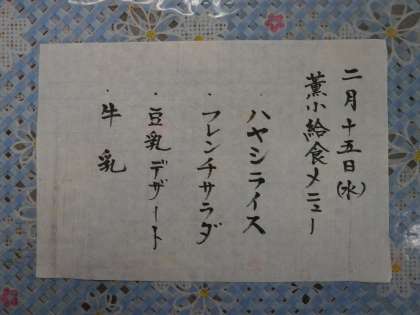 二月十五日(水)
薫小給食メニュー
・ハヤシライス
・フレンチサラダ
・豆乳デザート
・牛乳